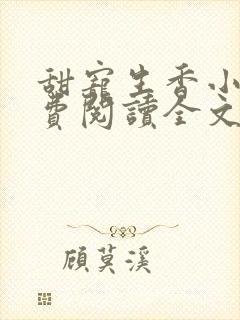 甜寵生香小
費閱讀全文
顧莫溪